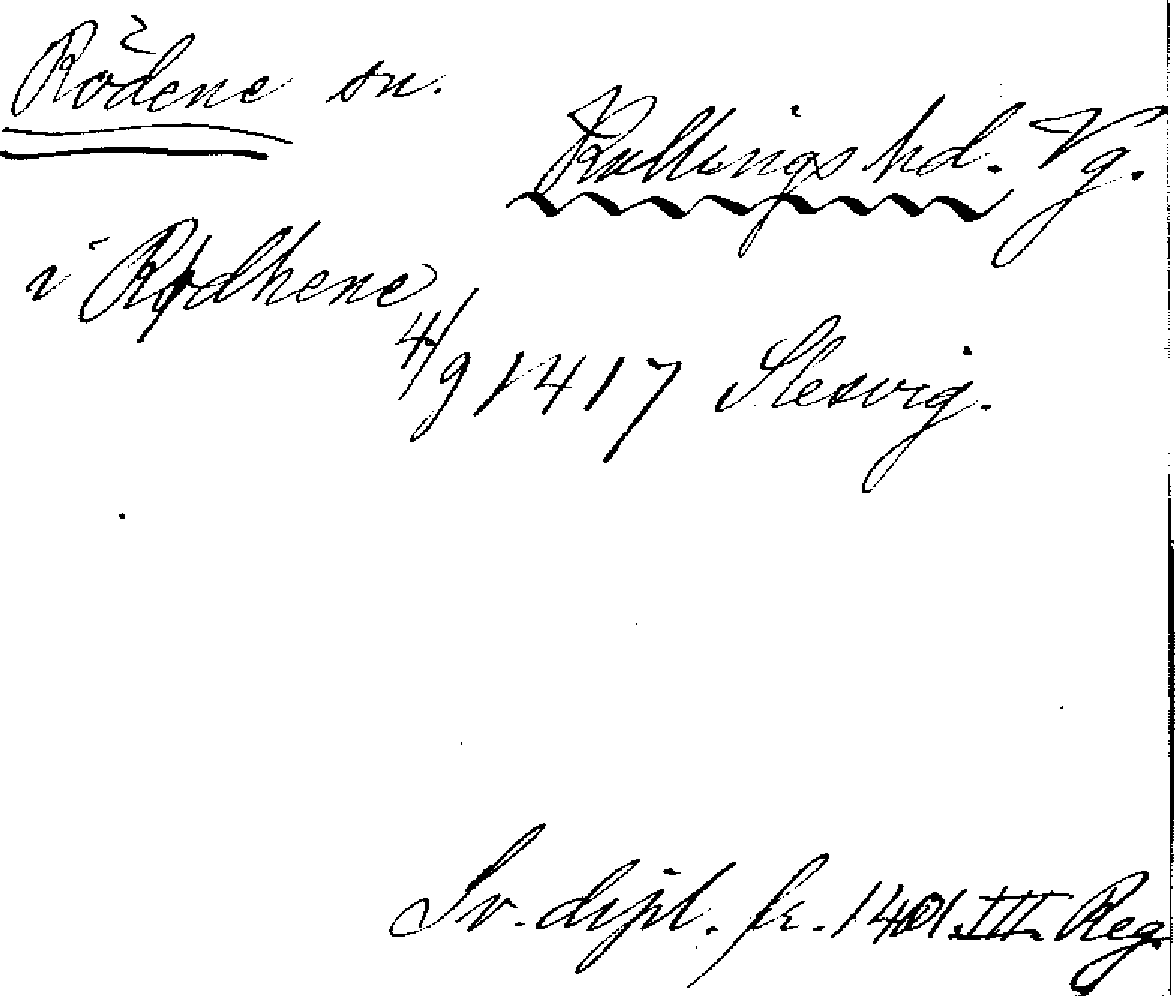 Rödene sn.
Kullings hd. Vg.
i Rødhene
4/9 1417 Slesvig.
Sv. dipl. fr. 1401 III. Reg.